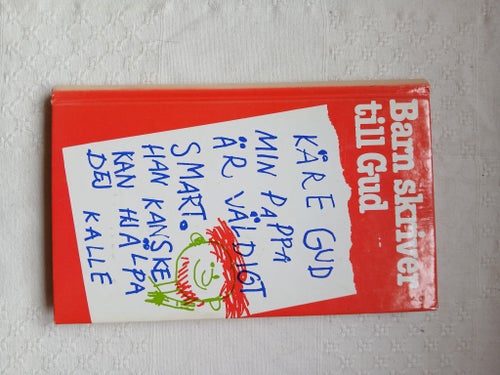 Barn skriver
till Gud
KÄRE GUD
MIN PAPPA
ÄR VÄLDIGT
SMART.
HAN KANSKE
KAN HJÄLPA
DEJ KALLE